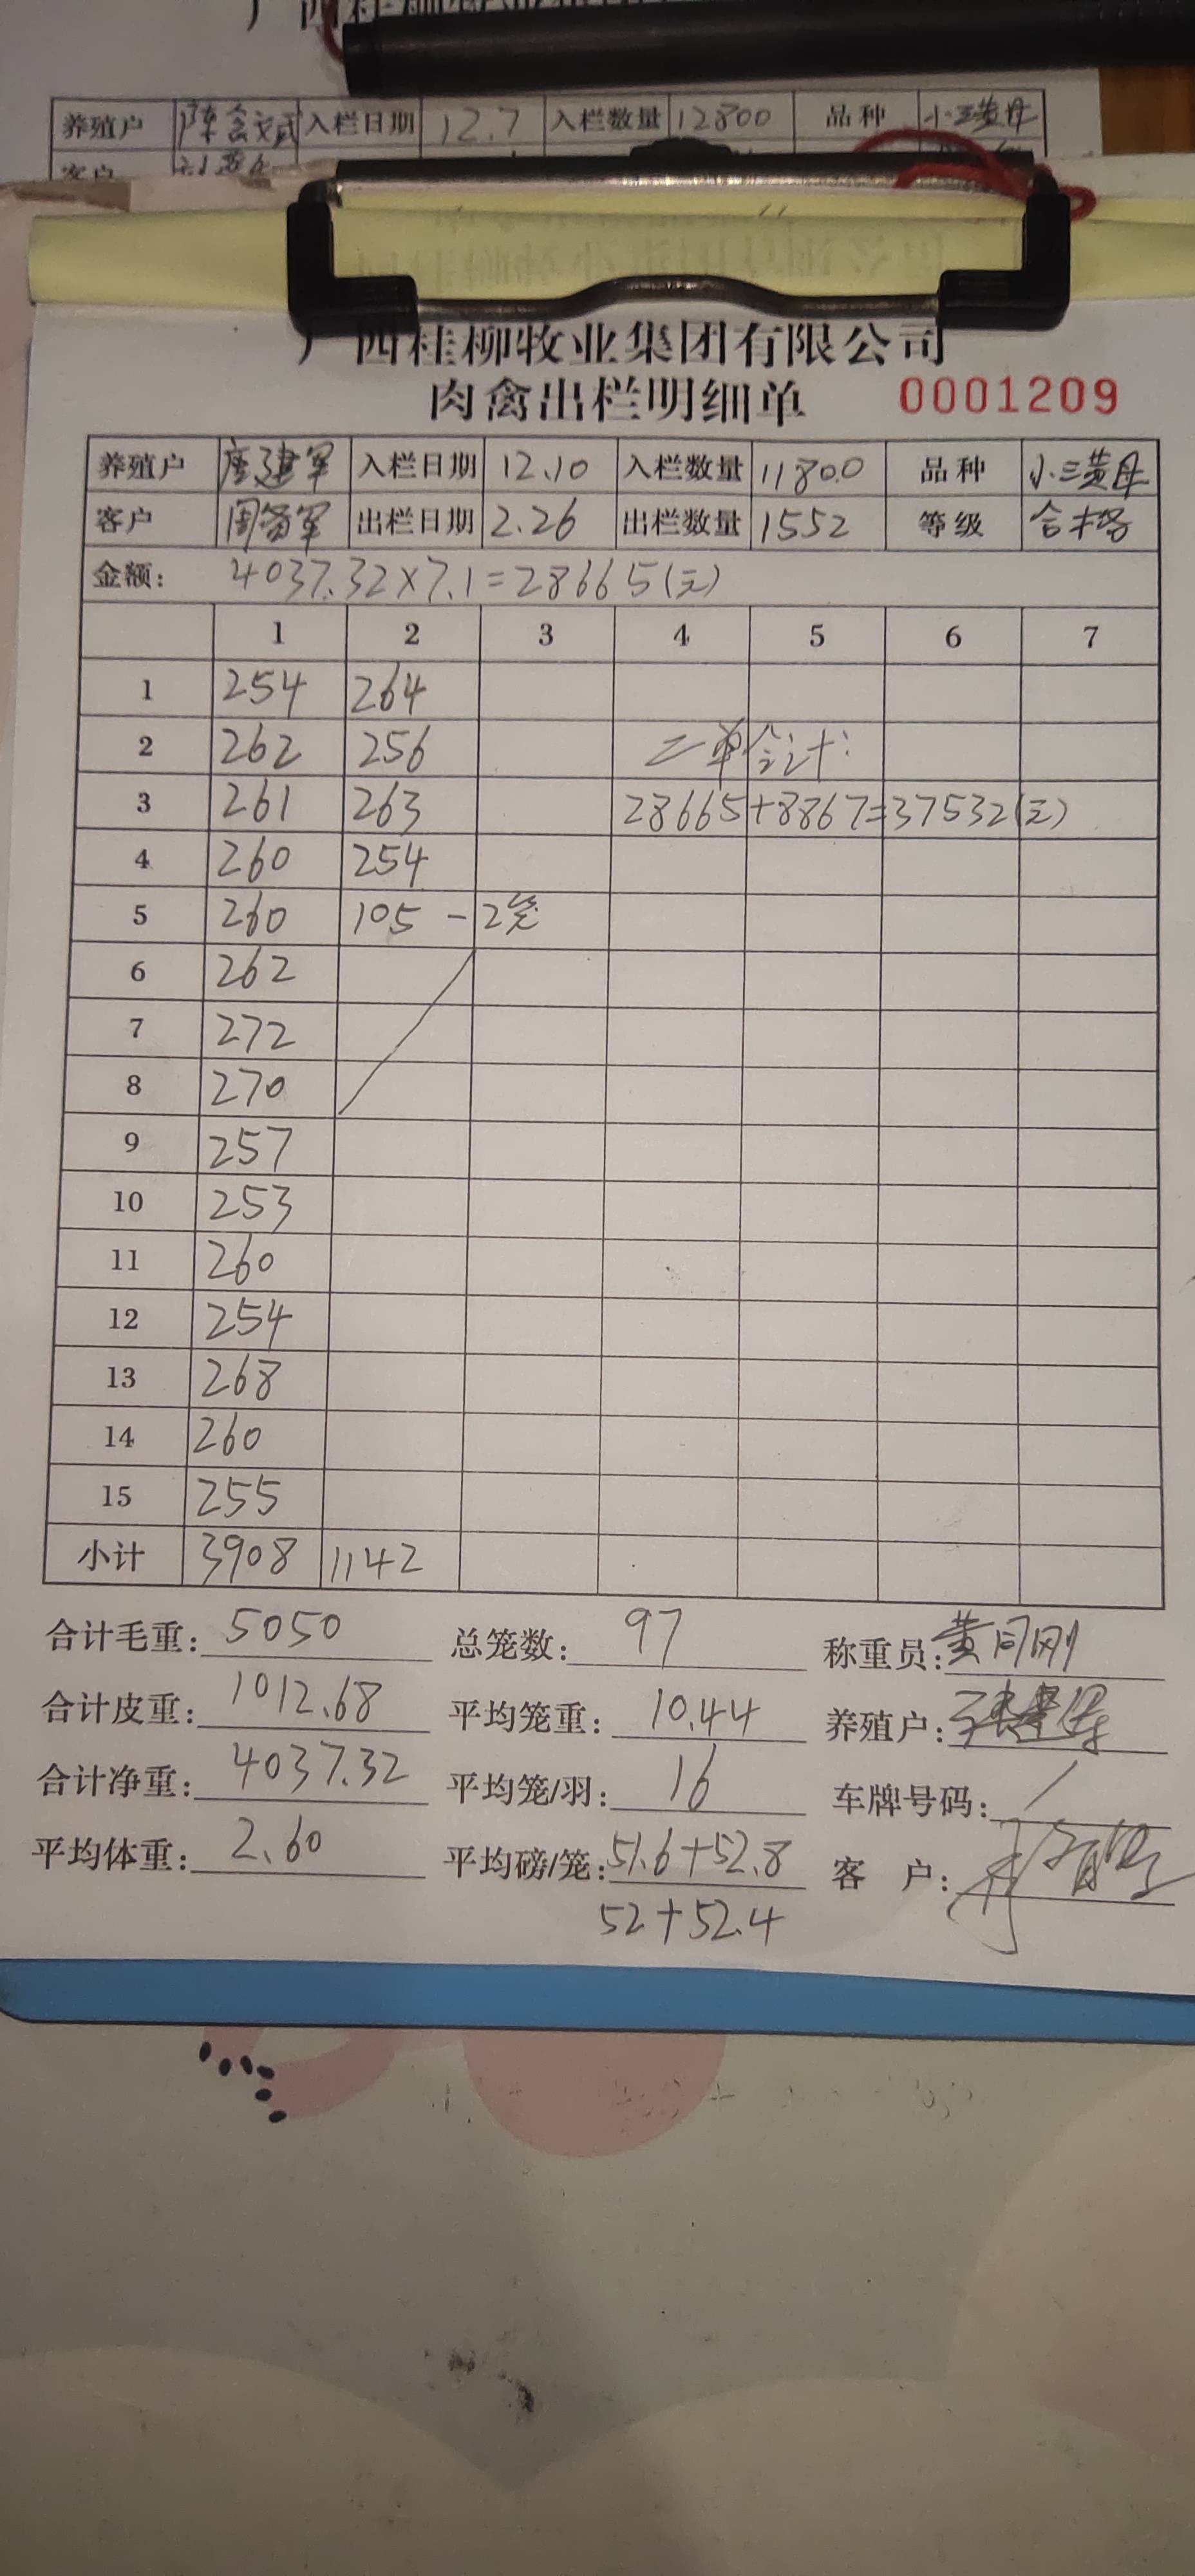 养殖户 陈会文武 入栏日期 12.7 入栏数量 12800 品种 小三黄母
客户
广西桂柳牧业集团有限公司
肉禽出栏明细单 0001209
养殖户 唐建军 入栏日期 12.10 入栏数量 11800 品种 小三黄母
客户 周智军 出栏日期 2.26 出栏数量 1552 等级 合格
金额: 4037.32×7.1=28665(元)
1 2 3 4 5 6 7
1 254 264
2 262 256 二单合计:
3 261 263 28665+8867=37532(元)
4 260 254
5 260 105 -2笼
6 262
7 272
8 270
9 257
10 253
11 260
12 254
13 268
14 260
15 255
小计 3908 1142
合计毛重: 5050 总笼数: 97 称重员: 黄同刚
合计皮重: 1012.68 平均笼重: 10.44 养殖户:
合计净重: 4037.32 平均笼/羽: 16 车牌号码: /
平均体重: 2.60 平均磅/笼: 51.6+52.8 客 户:
52+52.4